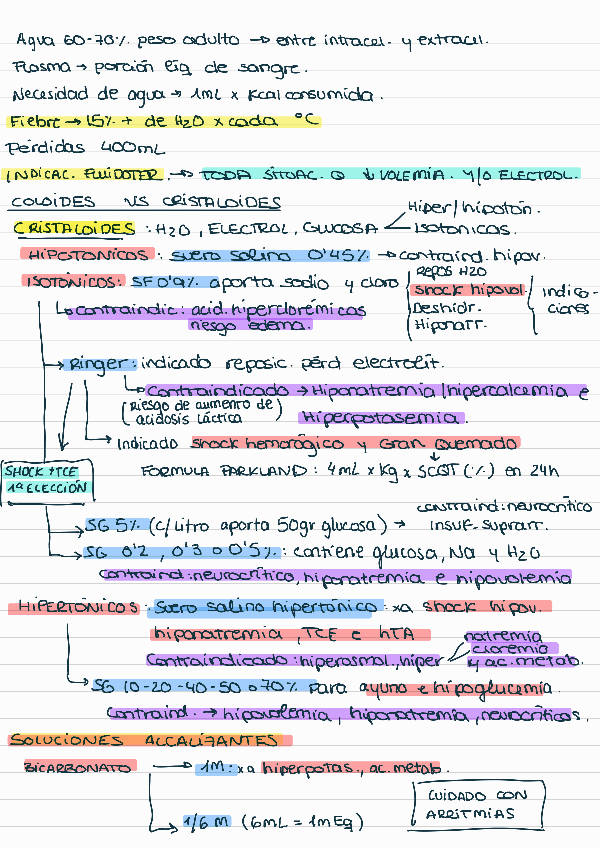 Agua 60-70% peso adulto → entre intracel. y extracel.
Plasma → porción líq. de sangre.
Necesidad de agua → 1mL x Kcal consumida.
Fiebre → 15% + de H2O x cada °C
Pérdidas 400mL
INDICAC. FLUIDOTER. → TODA SITUAC. ↓ VOLEMIA. Y/O ELECTROL.
COLOIDES VS CRISTALOIDES
CRISTALOIDES : H2O, ELECTROL, GLUCOSA
Hiper/hipotón.
Isotónicos.
HIPOTÓNICOS : suero salino 0'45% → contraind. hipov.
ISOTÓNICOS: SF 0'9% aporta sodio y cloro
REPOS H2O
shock hipovol.
Deshidr.
Hiponatr.
Indicaciones
↳ contraindic: acid. hiperclorémicos
riesgo edema.
→ Ringer : indicado reposic. pérd electrolit.
→ Contraindicado → Hiponatremia / hipercalcemia e
Hiperpotasemia.
(Riesgo de aumento de acidosis láctica)
→ Indicado shock hemorrágico y Gran Quemado
SHOCK + TCE
1ª ELECCIÓN
FORMULA PARKLAND : 4mL x Kg x SCQT (%) en 24h
→ SG 5% (c/Litro aporta 50gr glucosa) →
contraind: neurocrítico
insuf. suprarr.
→ SG 0'2, 0'3 o 0'5% : contiene glucosa, Na y H2O
Contraind: neurocrítico, hiponatremia e hipovolemia
HIPERTÓNICOS : Suero salino hipertónico : xa shock hipov.
hiponatremia, TCE e hTA
Contraindicado : hiperosmol, hiper
natremia
cloremia
y ac. metab.
→ SG 10-20-40-50 o 70% para ayuno e hipoglucemia.
Contraind. → hipovolemia, hiponatremia, neurocríticos.
SOLUCIONES ALCALIZANTES
BICARBONATO → 1M: xa hiperpotas., ac. metab.
→ 1/6 M (6mL = 1mEq)
CUIDADO CON
ARRITMIAS